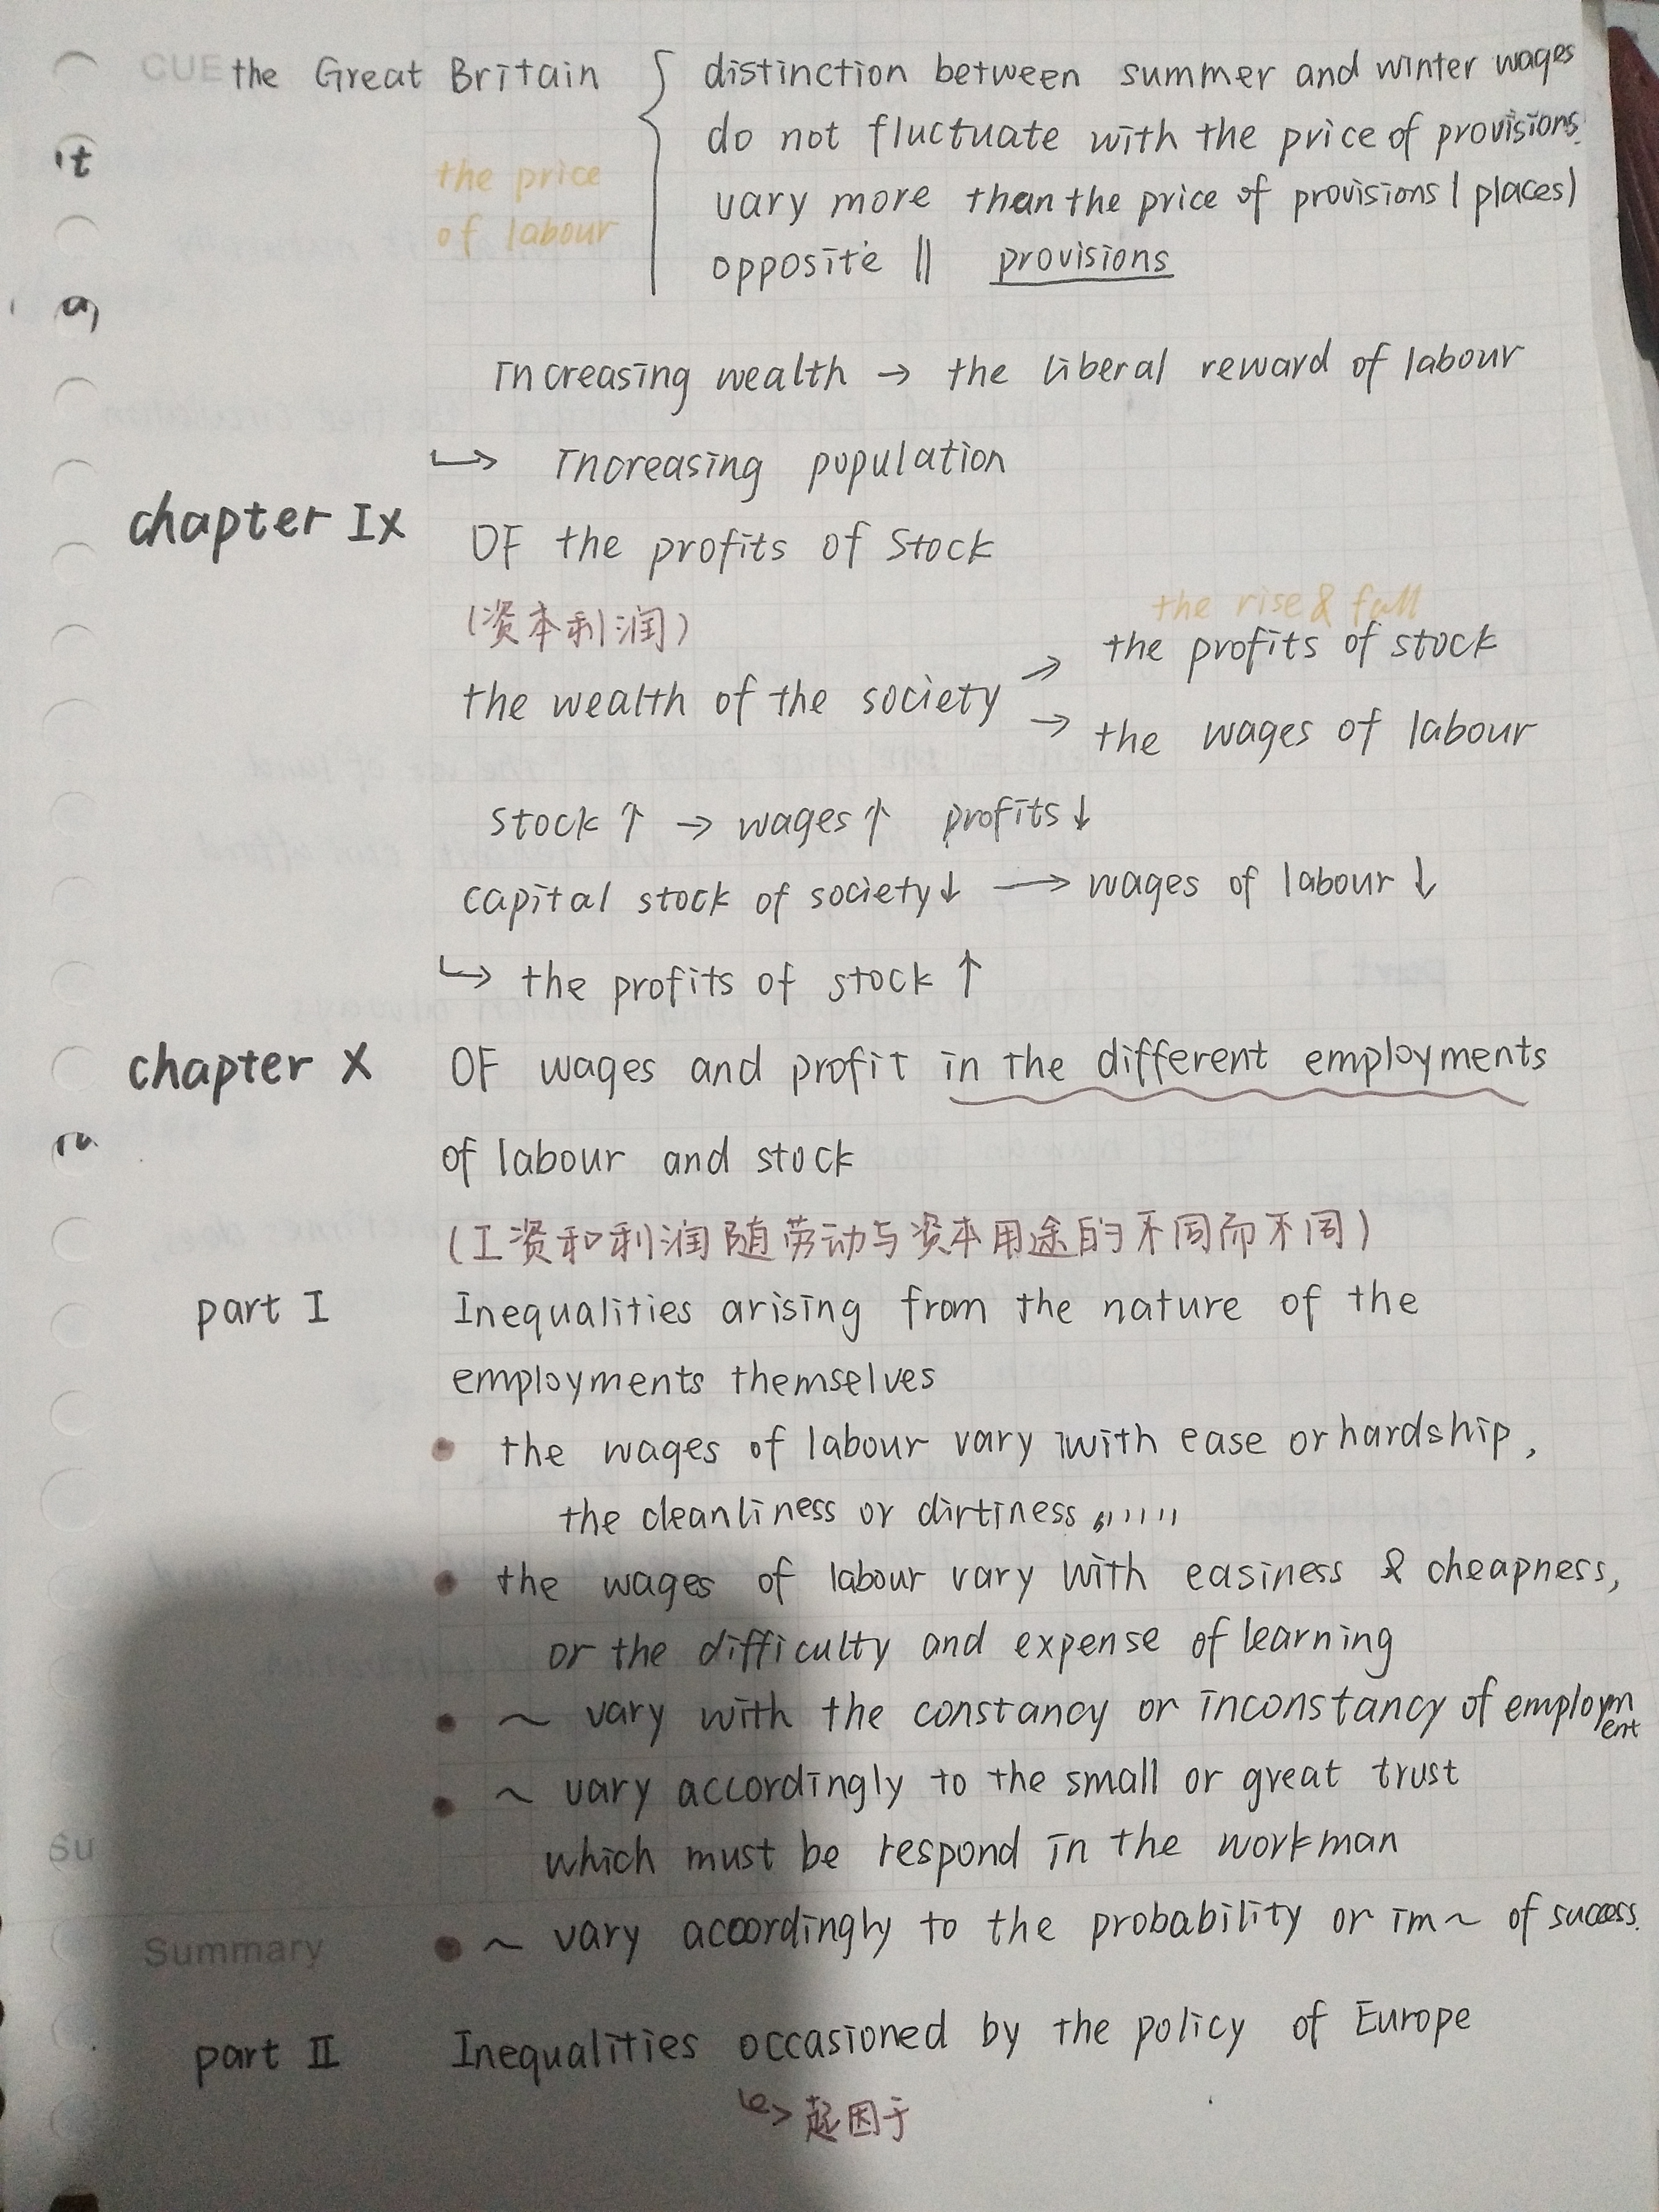 CUE the Great Britain { distinction between summer and winter wages
do not fluctuate with the price of provisions.
the price
of labour
vary more than the price of provisions (places)
opposite || provisions
Increasing wealth → the liberal reward of labour
↳ Increasing population
chapter IX OF the profits of Stock
(资本利润)
the rise & fall
the wealth of the society → the profits of stock
→ the wages of labour
stock ↑ → wages ↑ profits ↓
capital stock of society ↓ → wages of labour ↓
↳ the profits of stock ↑
chapter X OF wages and profit in the different employments
of labour and stock
(工资和利润随劳动与资本用途的不同而不同)
part I Inequalities arising from the nature of the
employments themselves
• the wages of labour vary with ease or hardship,
the cleanliness or dirtiness ,,,,,,
• the wages of labour vary with easiness & cheapness,
or the difficulty and expense of learning
• ~ vary with the constancy or inconstancy of employment
• ~ vary accordingly to the small or great trust
which must be respond in the workman
Summary • ~ vary accordingly to the probability or im~ of success.
part II Inequalities occasioned by the policy of Europe
↳ 起因于